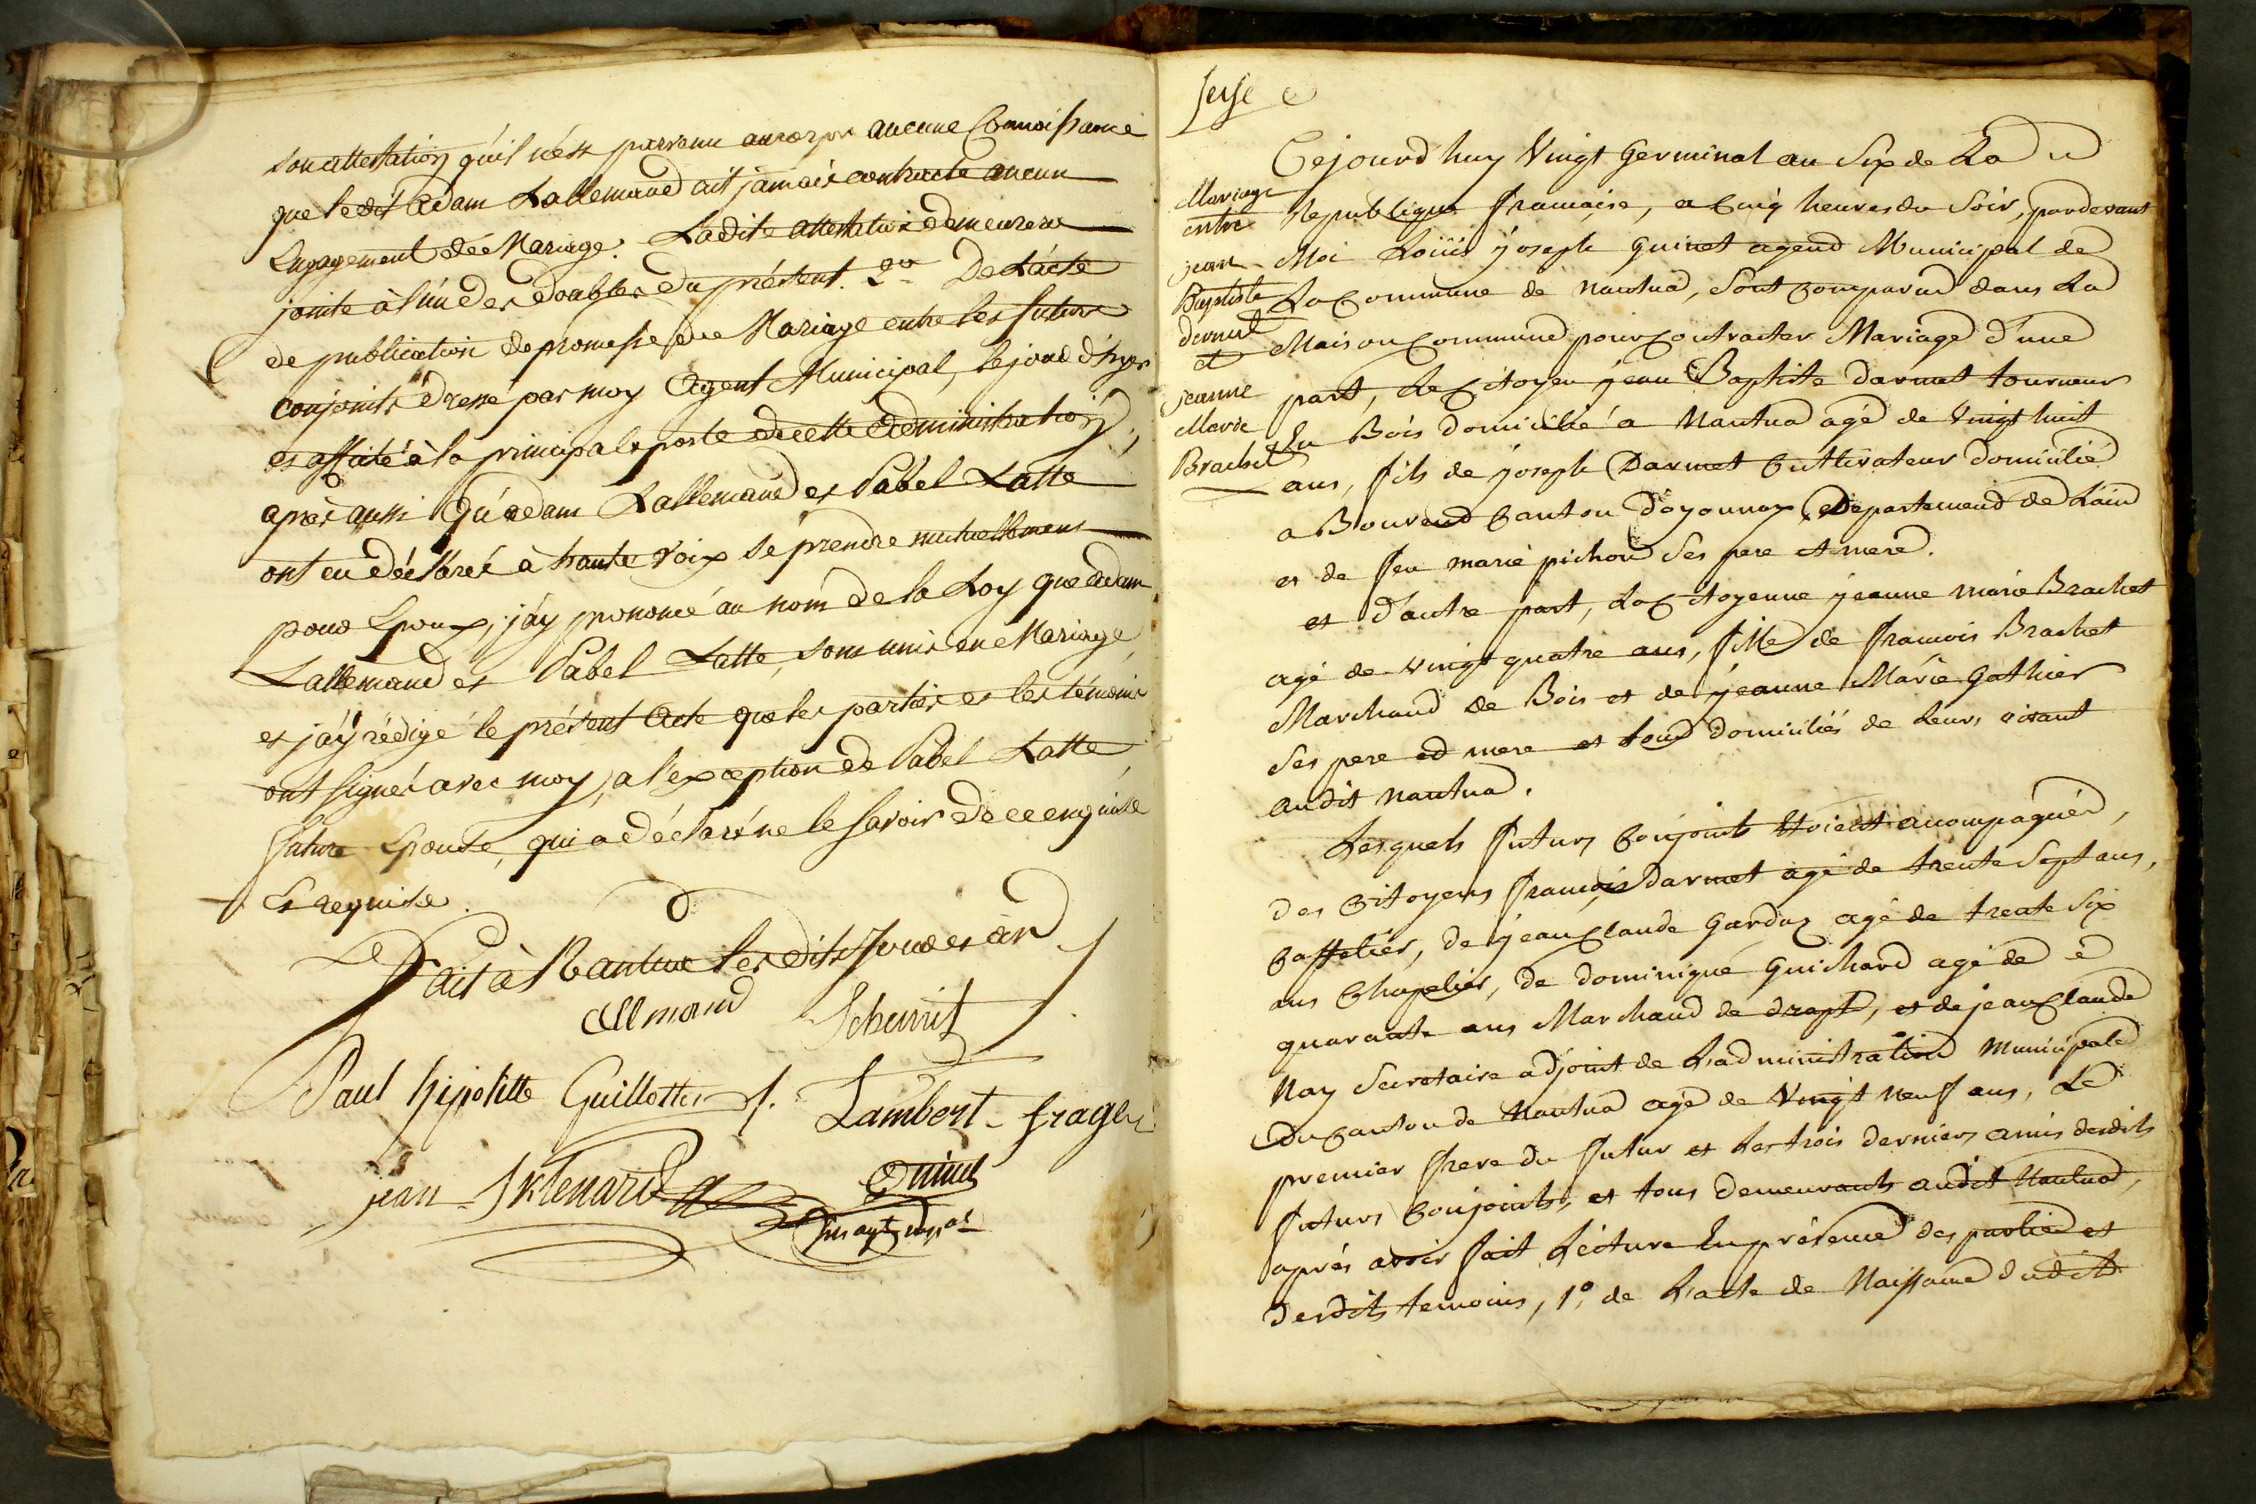 son attestation qu'il n'est parvenu au corps aucune Connoissance
que ledit Adam Lallemand ait jamais contracté aucun
Engagement de Mariage. Ladite attestation demeurera
jointe à l'un des doubles du présent. 2° De L'acte
de publication de promesse de Mariage entre les futurs
conjoints dressé par moy Agent Municipal, le jour d'hyer
et affiché à la principale porte de cette administration,
après aussi Qu'adam Lallemand et Babel Latte
ont eu déclaré à haute voix se prendre mutuellement
pour Epoux, j'ay prononcé au nom de la Loy que adam
Lallemand et Babel Latte, sont unis en Mariage,
et j'ay rédigé le présent Acte que les parties et les témoins
ont signés avec moy, a l'exception de Babel Latte
future Epouse, qui a déclaré ne le savoir de ce enquise
Et requise.
Fait à Nantua les dits Jour et an
allmand Schurrit
Paul hipolitte Guillotte Lambert
jean
Quinet
Sejse
Cejourd'huy Vingt Germinal an Six de La
Mariage
entre
jean
Baptiste
darmet
et
jeanne
Marie
Brachet
Republique francaise, a Cinq heures du Soir, pardevant
Moi Loüis joseph Guinet agend Municipal de
La Commune de Nantua, Sont Comparud dans La
Maison Commune pour Contracter Mariage d'une
part, Le Citoyen jean Baptiste Darmet tourneur
En Bois domicilié a Nantua agé de Vingt huit
ans, fils de joseph Darmet Cultivateur domicilié
a Bouvend Canton d'oyonnax, Departemend de L'ain
et de feu marie pichon Ses pere et mere.
et d'autre part, La Citoyenne jeanne marie Brachet
agé de vingt quatre ans, fille de francois Brachet
Marchand de Bois et de jeanne Marie Gathier
Ses pere ed mere et tous domiciliés de Leurs vivant
audit Nantua.
Lesquels futurs Conjoints Etoient acompagnés,
des Citoyens francois Darmet agé de trente Sept ans,
Caffetier, de jean Claude Garduz agé de trente Six
ans Chapelier, de dominique Guichard agé de
quarante ans Marchand de drapt, et de jean Claude
Nay Secretaire adjoint de Ladministration Municipale
du Canton de Nantua agé de Vingt neuf ans, Le
premier frere du futur et Les trois derniers amis desdits
futurs Conjoints, et tous demeurants audit Nantua,
aprés avoir fait Lecture En présence des parties et
desdits temoins, 1° de L'acte de Naissance dudit